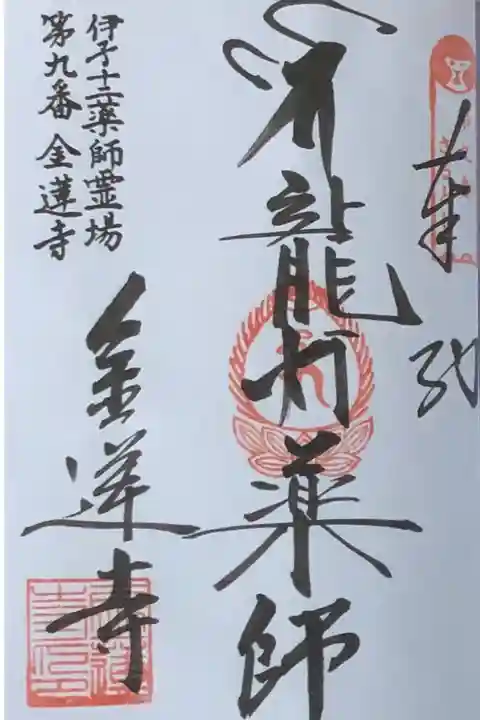 奉拝
龍灯薬師
金蓮寺
伊予十二薬師霊場
第九番 金蓮寺